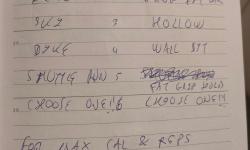 SKI 3 HOLLOW
BIKE 4 WALL SIT
5 FAT GRIP HOLD
CHOOSE ONE!! 6 CHOOSE ONE!!
FOR MAX CAL & REPS